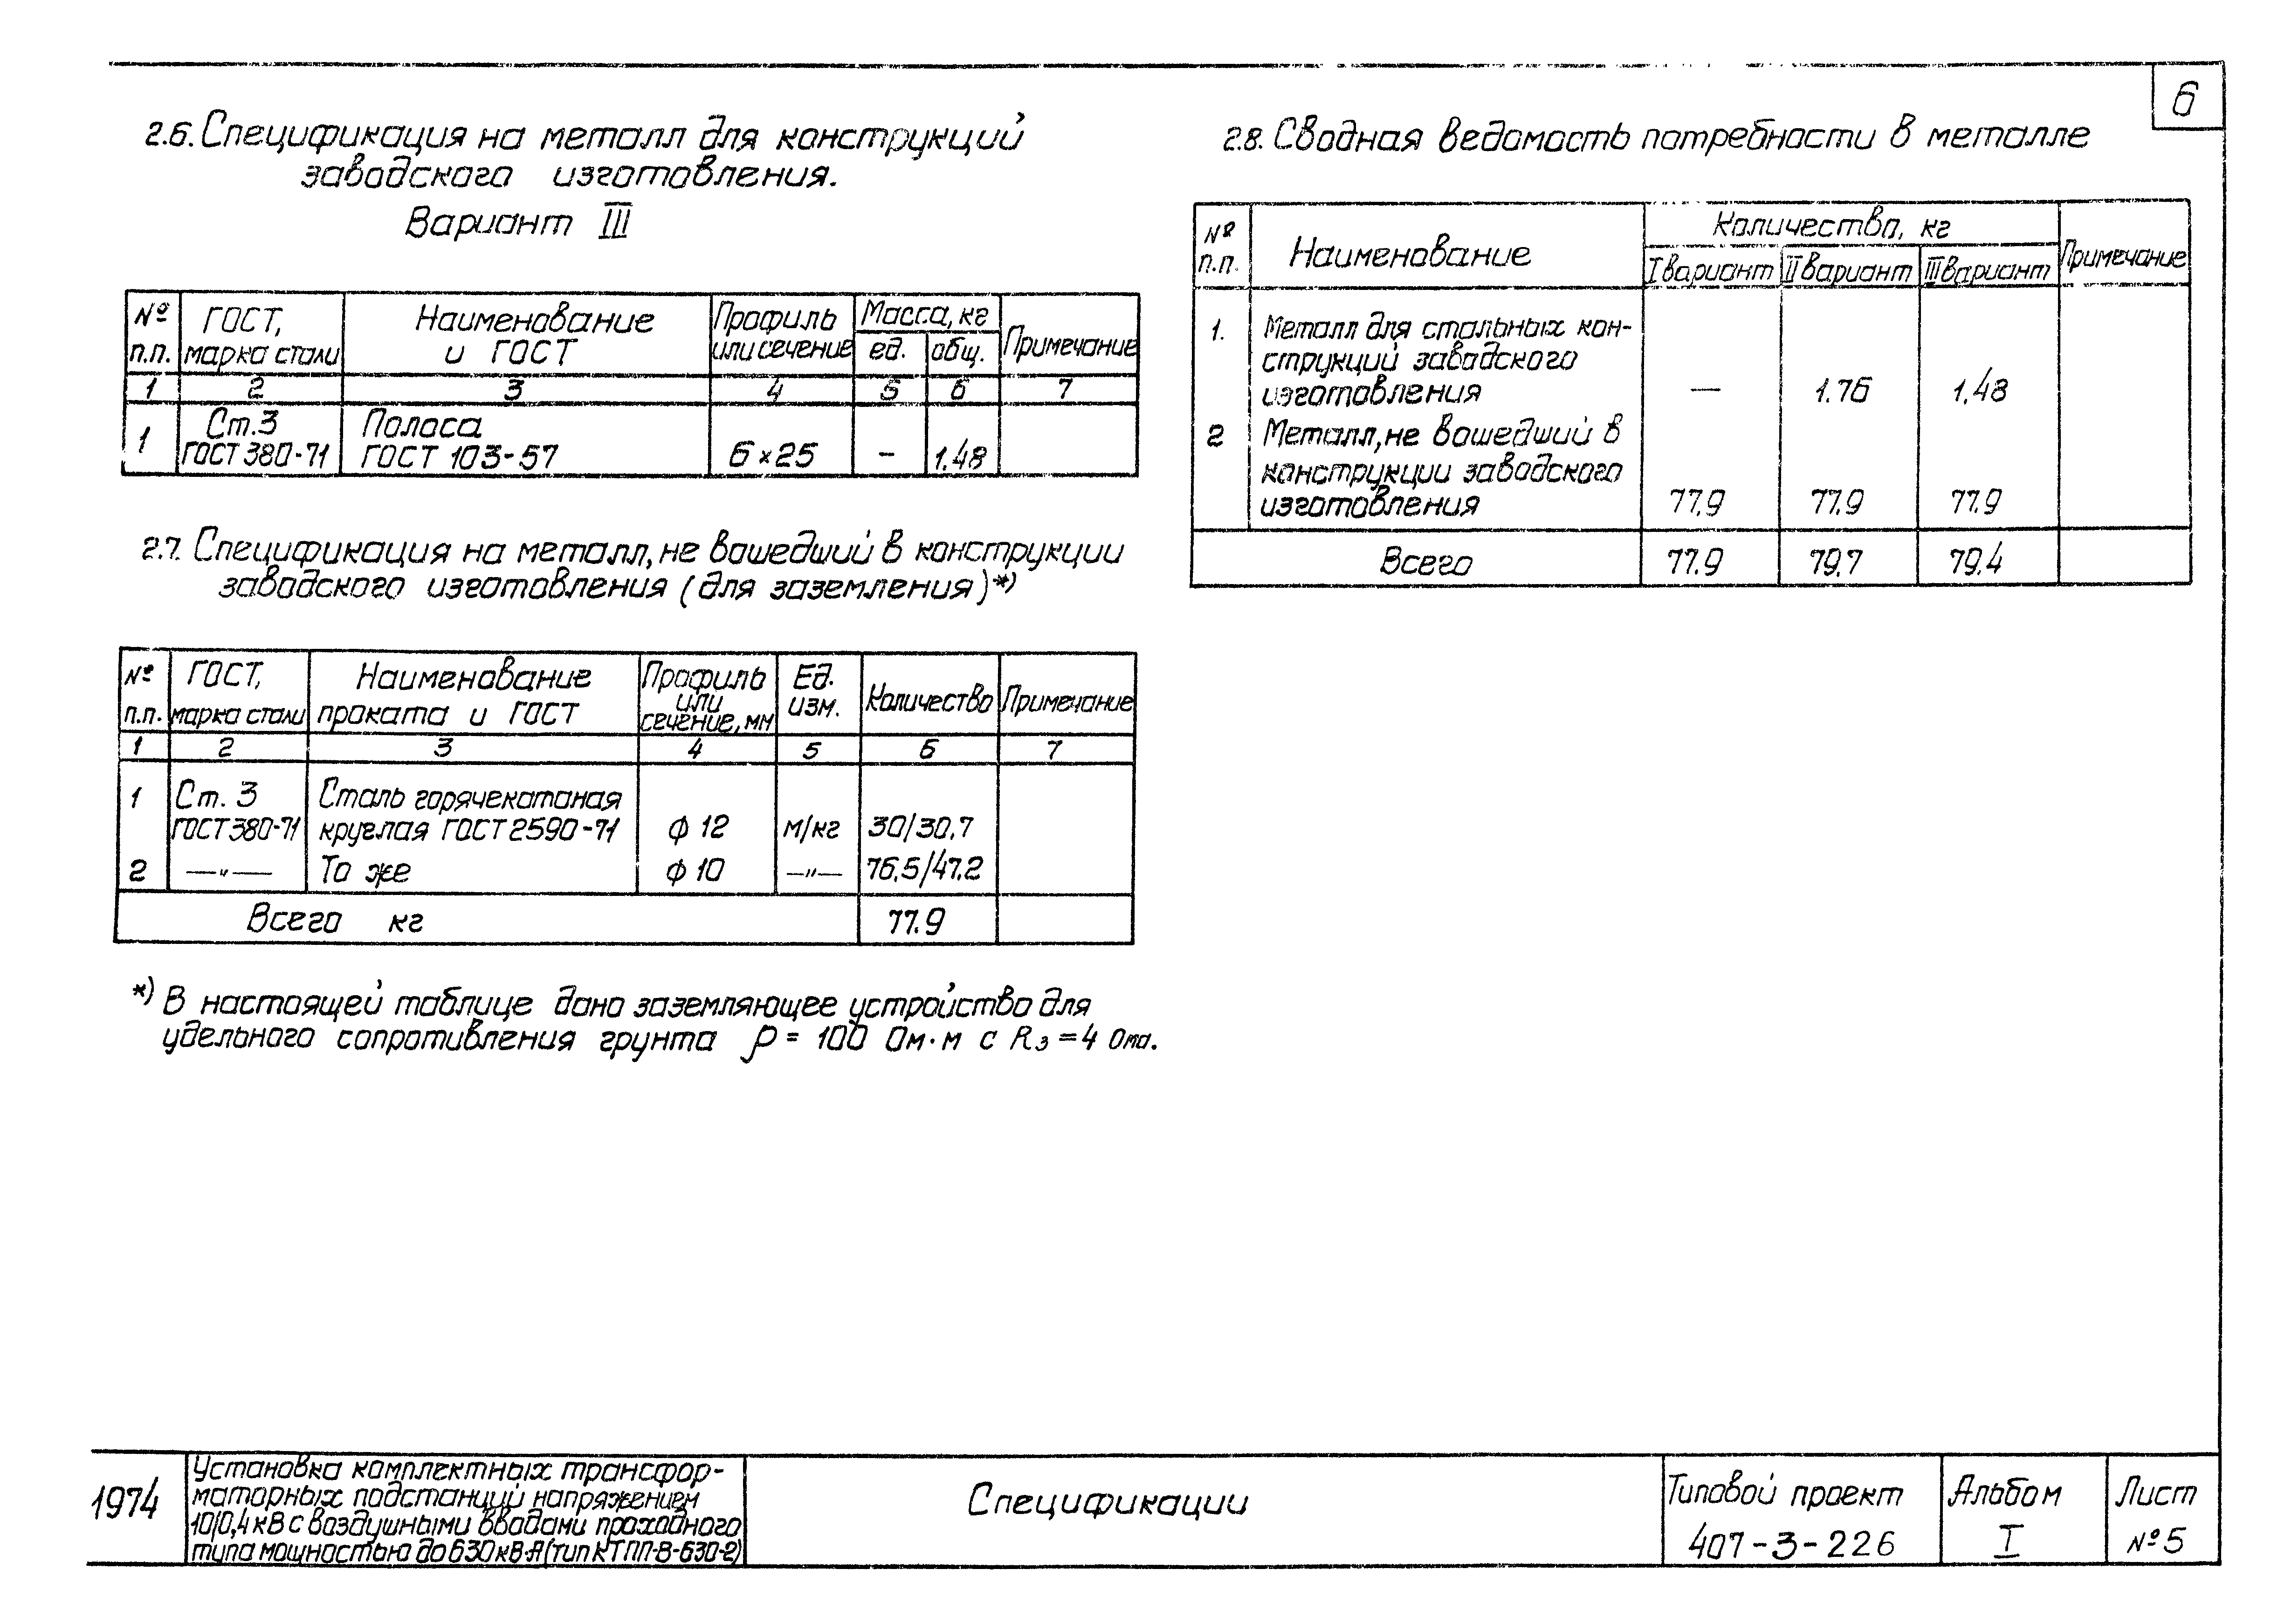 6
2.6. Спецификация на металл для конструкций
заводского изготовления.
Вариант III
№ п.п. ГОСТ, марка стали Наименование и ГОСТ Профиль или сечение Масса, кг ед. общ. Примечание
1 2 3 4 5 6 7
1 Ст.3 ГОСТ 380-71 Полоса ГОСТ 103-57 6×25 - 1.48
2.7. Спецификация на металл, не вошедший в конструкции
заводского изготовления (для заземления)*)
№ п.п. ГОСТ, марка стали Наименование проката и ГОСТ Профиль или сечение, мм Ед. изм. Количество Примечание
1 2 3 4 5 6 7
1 Ст. 3 ГОСТ 380-71 Сталь горячекатаная круглая ГОСТ 2590-71 ф 12 м/кг 30/30.7
2 —"— То же ф 10 —"— 76.5/47.2
Всего кг 77.9
*) В настоящей таблице дано заземляющее устройство для
удельного сопротивления грунта ρ = 100 Ом·м с Rз = 4 Ома.
2.8. Сводная ведомость потребности в металле
№ п.п. Наименование Количество, кг I вариант II вариант III вариант Примечание
1. Металл для стальных кон-
струкций заводского
изготовления — 1.76 1.48
2 Металл, не вошедший в
конструкции заводского
изготовления 77.9 77.9 77.9
Всего 77.9 79.7 79.4
1974
Установка комплектных трансфор-
маторных подстанций напряжением
10/0,4 кВ с воздушными вводами проходного
типа мощностью до 630 кВ·А (тип КТПП-В-630-2)
Спецификации
Типовой проект
407-3-226
Альбом
I
Лист
№ 5